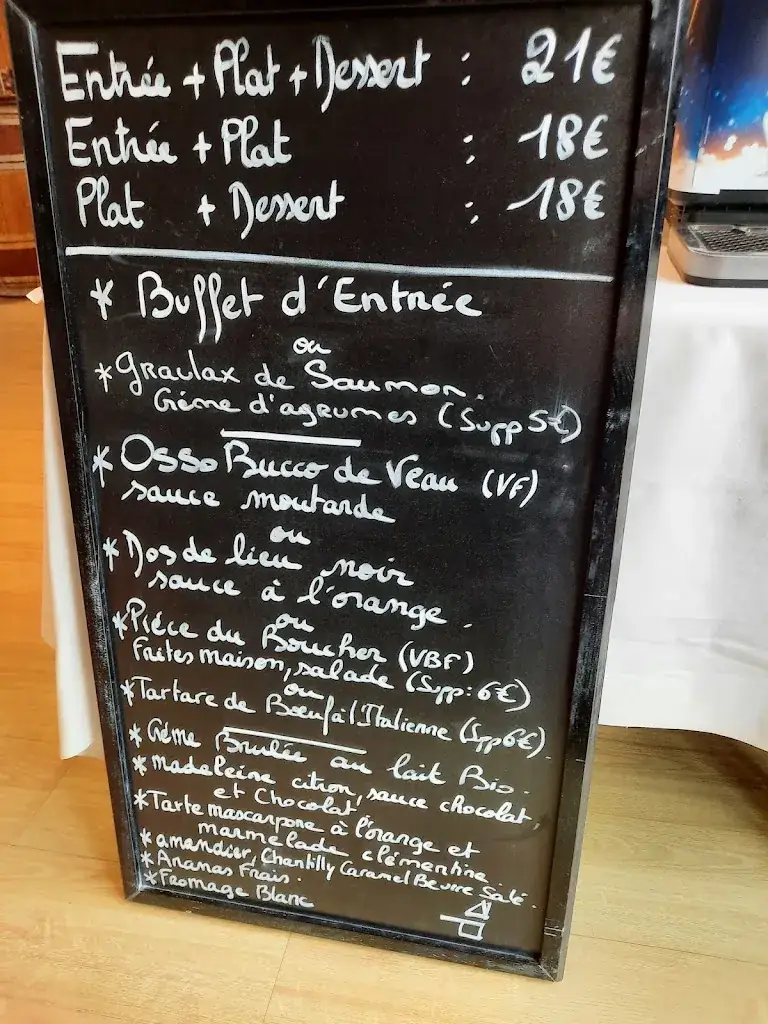 Entrée + Plat + Dessert : 21€
Entrée + Plat : 18€
Plat + Dessert : 18€
* Buffet d'Entrée
ou
* Gravlax de Saumon.
Crème d'agrumes (Supp 5€)
* Osso Bucco de Veau (VF)
sauce moutarde
ou
* Dos de lieu noir
sauce à l'orange.
ou
* Pièce du Boucher (VBF)
Frites maison, salade (Supp: 6€)
ou
* Tartare de Bœuf à l'Italienne (Spp 6€).
* Crème Brulée au lait Bio.
* Madeleine citron, sauce chocolat,
et Chocolat
* Tarte mascarpone à l'orange et
marmelade clémentine
* amandier, Chantilly Caramel Beurre Salé.
* Ananas Frais.
* Fromage Blanc